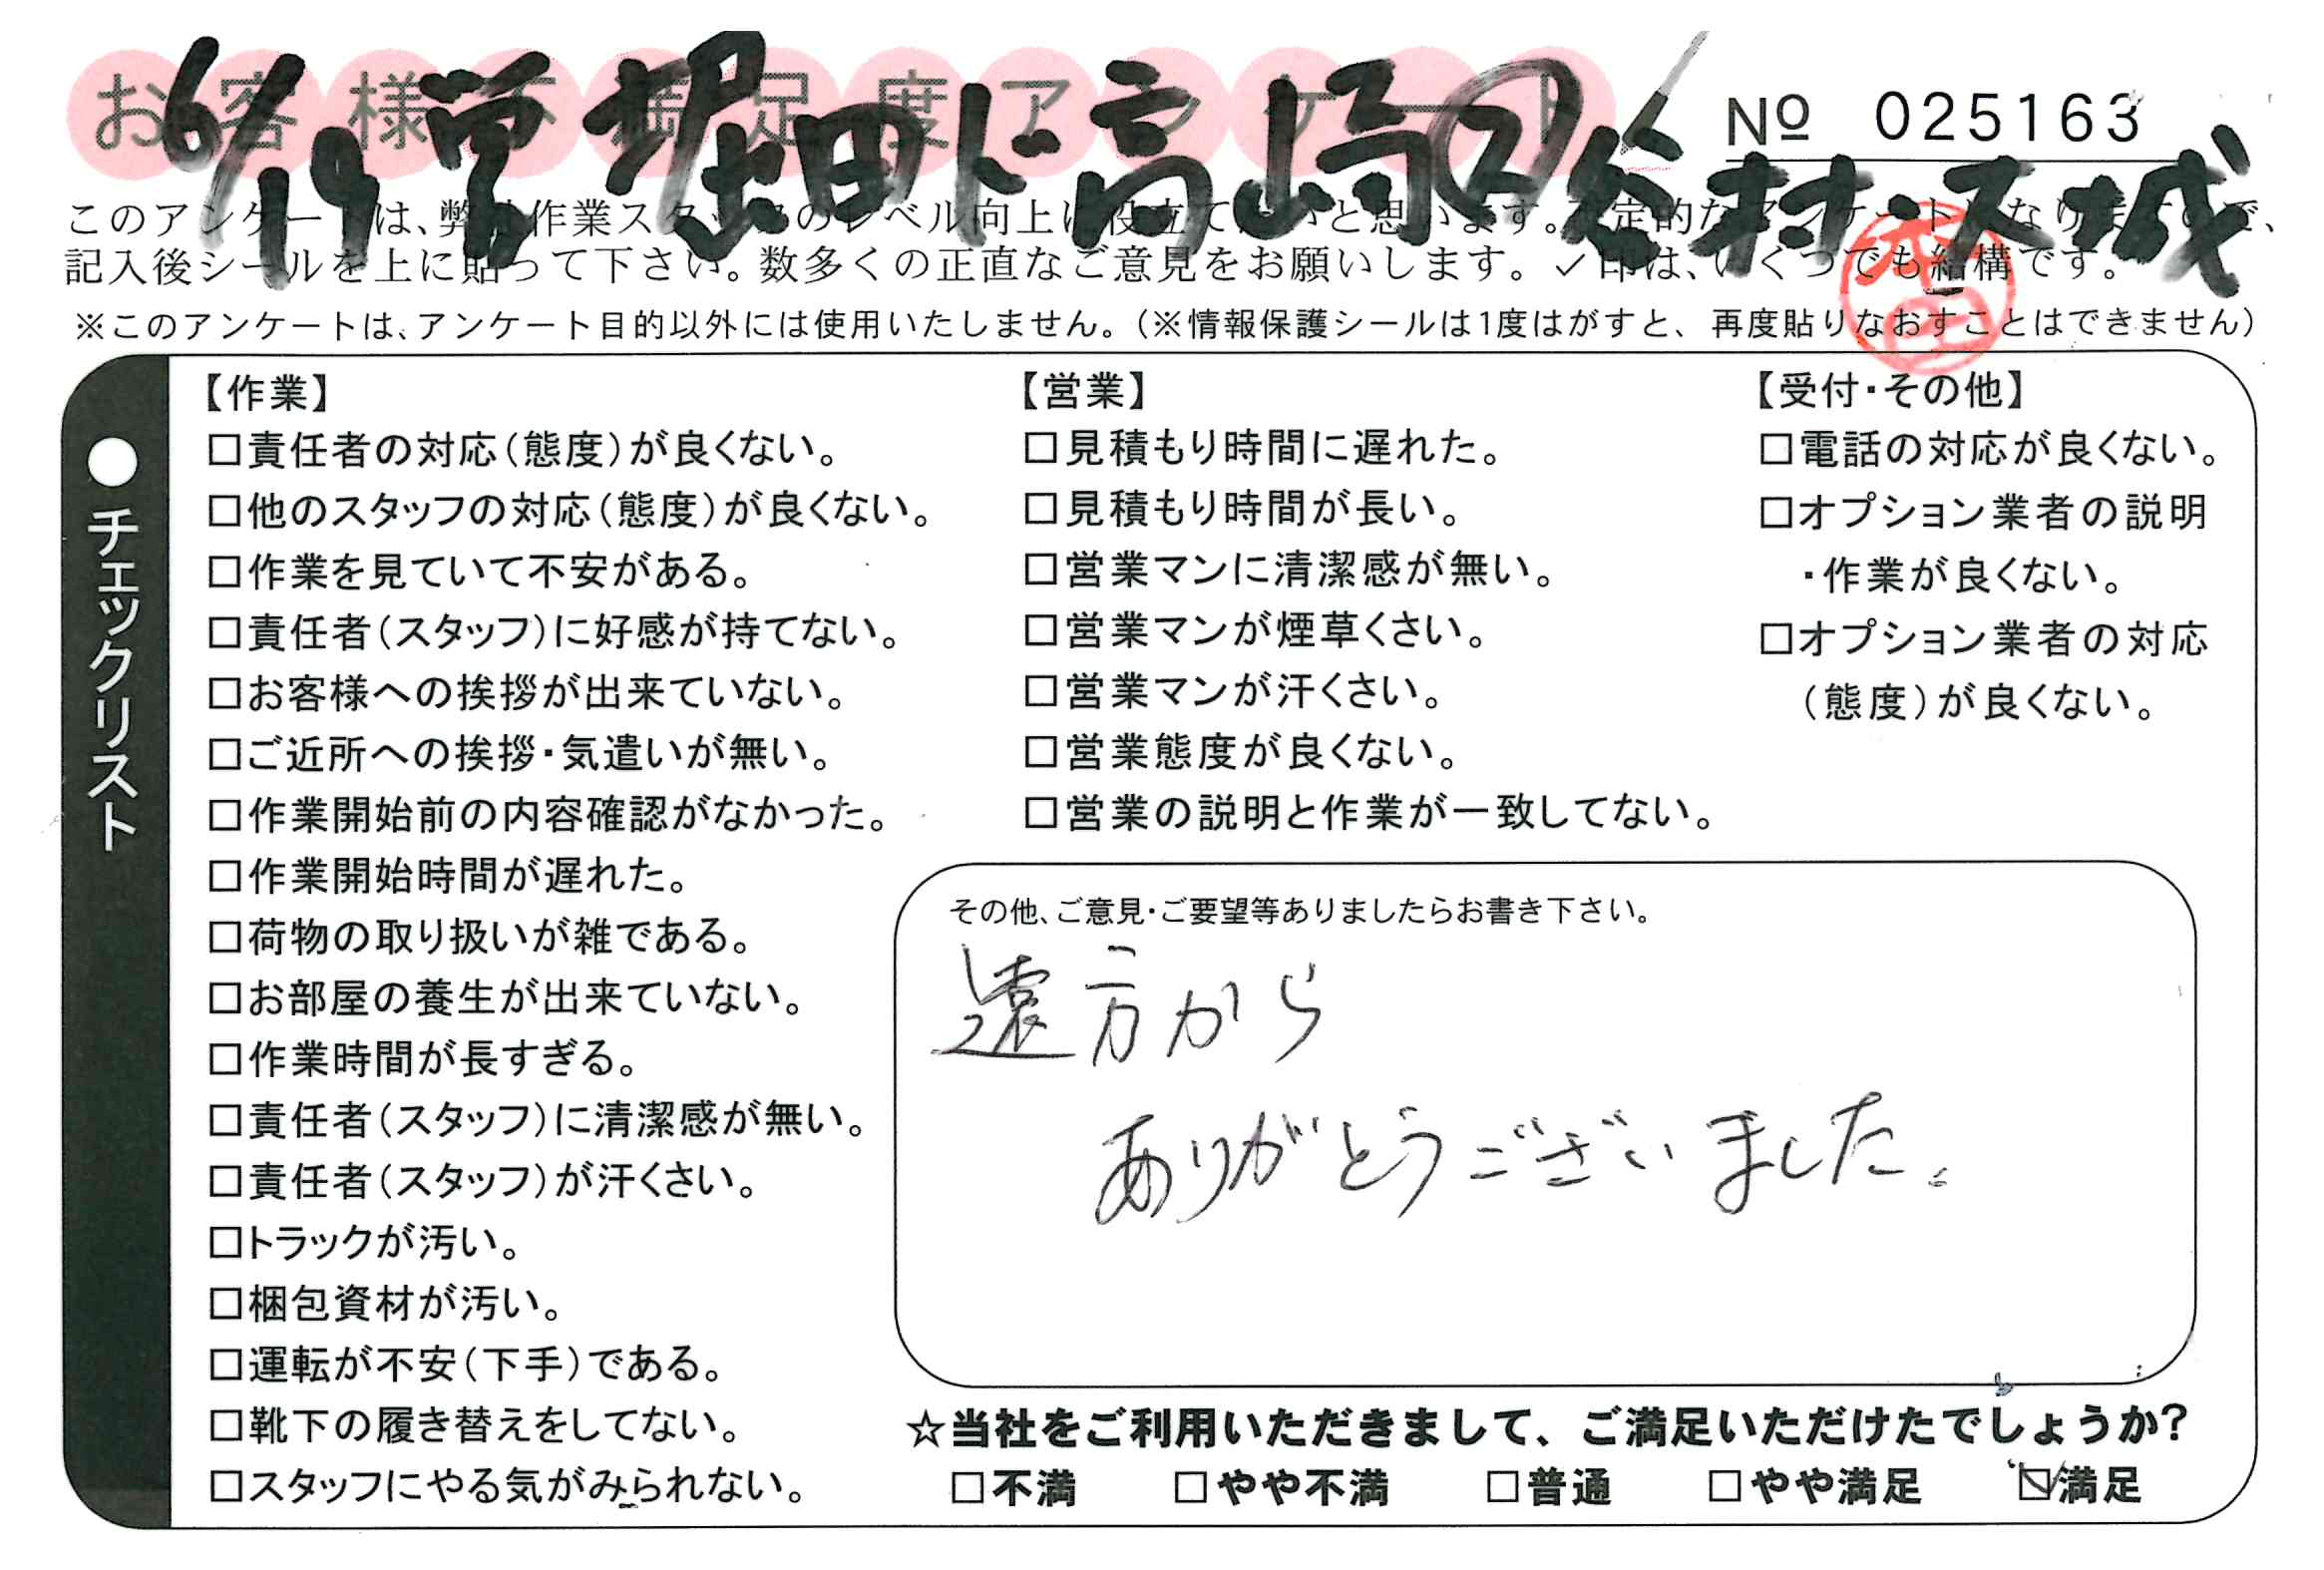 お客様不満足度アンケート
№ 025163
6/19 営 堀田 ド高崎 ㋷谷村 · 沢城
このアンケートは、弊社作業スタッフのレベル向上に役立てたいと思います。否定的なアンケートとなりますので、
記入後シールを上に貼って下さい。数多くの正直なご意見をお願いします。✓印は、いくつでも結構です。
※このアンケートは、アンケート目的以外には使用いたしません。（※情報保護シールは1度はがすと、再度貼りなおすことはできません）
●チェックリスト
【作業】
□責任者の対応（態度）が良くない。
□他のスタッフの対応（態度）が良くない。
□作業を見ていて不安がある。
□責任者（スタッフ）に好感が持てない。
□お客様への挨拶が出来ていない。
□ご近所への挨拶・気遣いが無い。
□作業開始前の内容確認がなかった。
□作業開始時間が遅れた。
□荷物の取り扱いが雑である。
□お部屋の養生が出来ていない。
□作業時間が長すぎる。
□責任者（スタッフ）に清潔感が無い。
□責任者（スタッフ）が汗くさい。
□トラックが汚い。
□梱包資材が汚い。
□運転が不安（下手）である。
□靴下の履き替えをしてない。
□スタッフにやる気がみられない。
【営業】
□見積もり時間に遅れた。
□見積もり時間が長い。
□営業マンに清潔感が無い。
□営業マンが煙草くさい。
□営業マンが汗くさい。
□営業態度が良くない。
□営業の説明と作業が一致してない。
【受付・その他】
□電話の対応が良くない。
□オプション業者の説明
・作業が良くない。
□オプション業者の対応
（態度）が良くない。
その他、ご意見・ご要望等ありましたらお書き下さい。
遠方から
ありがとうございました。
☆当社をご利用いただきまして、ご満足いただけたでしょうか？
□不満 □やや不満 □普通 □やや満足 ☑満足